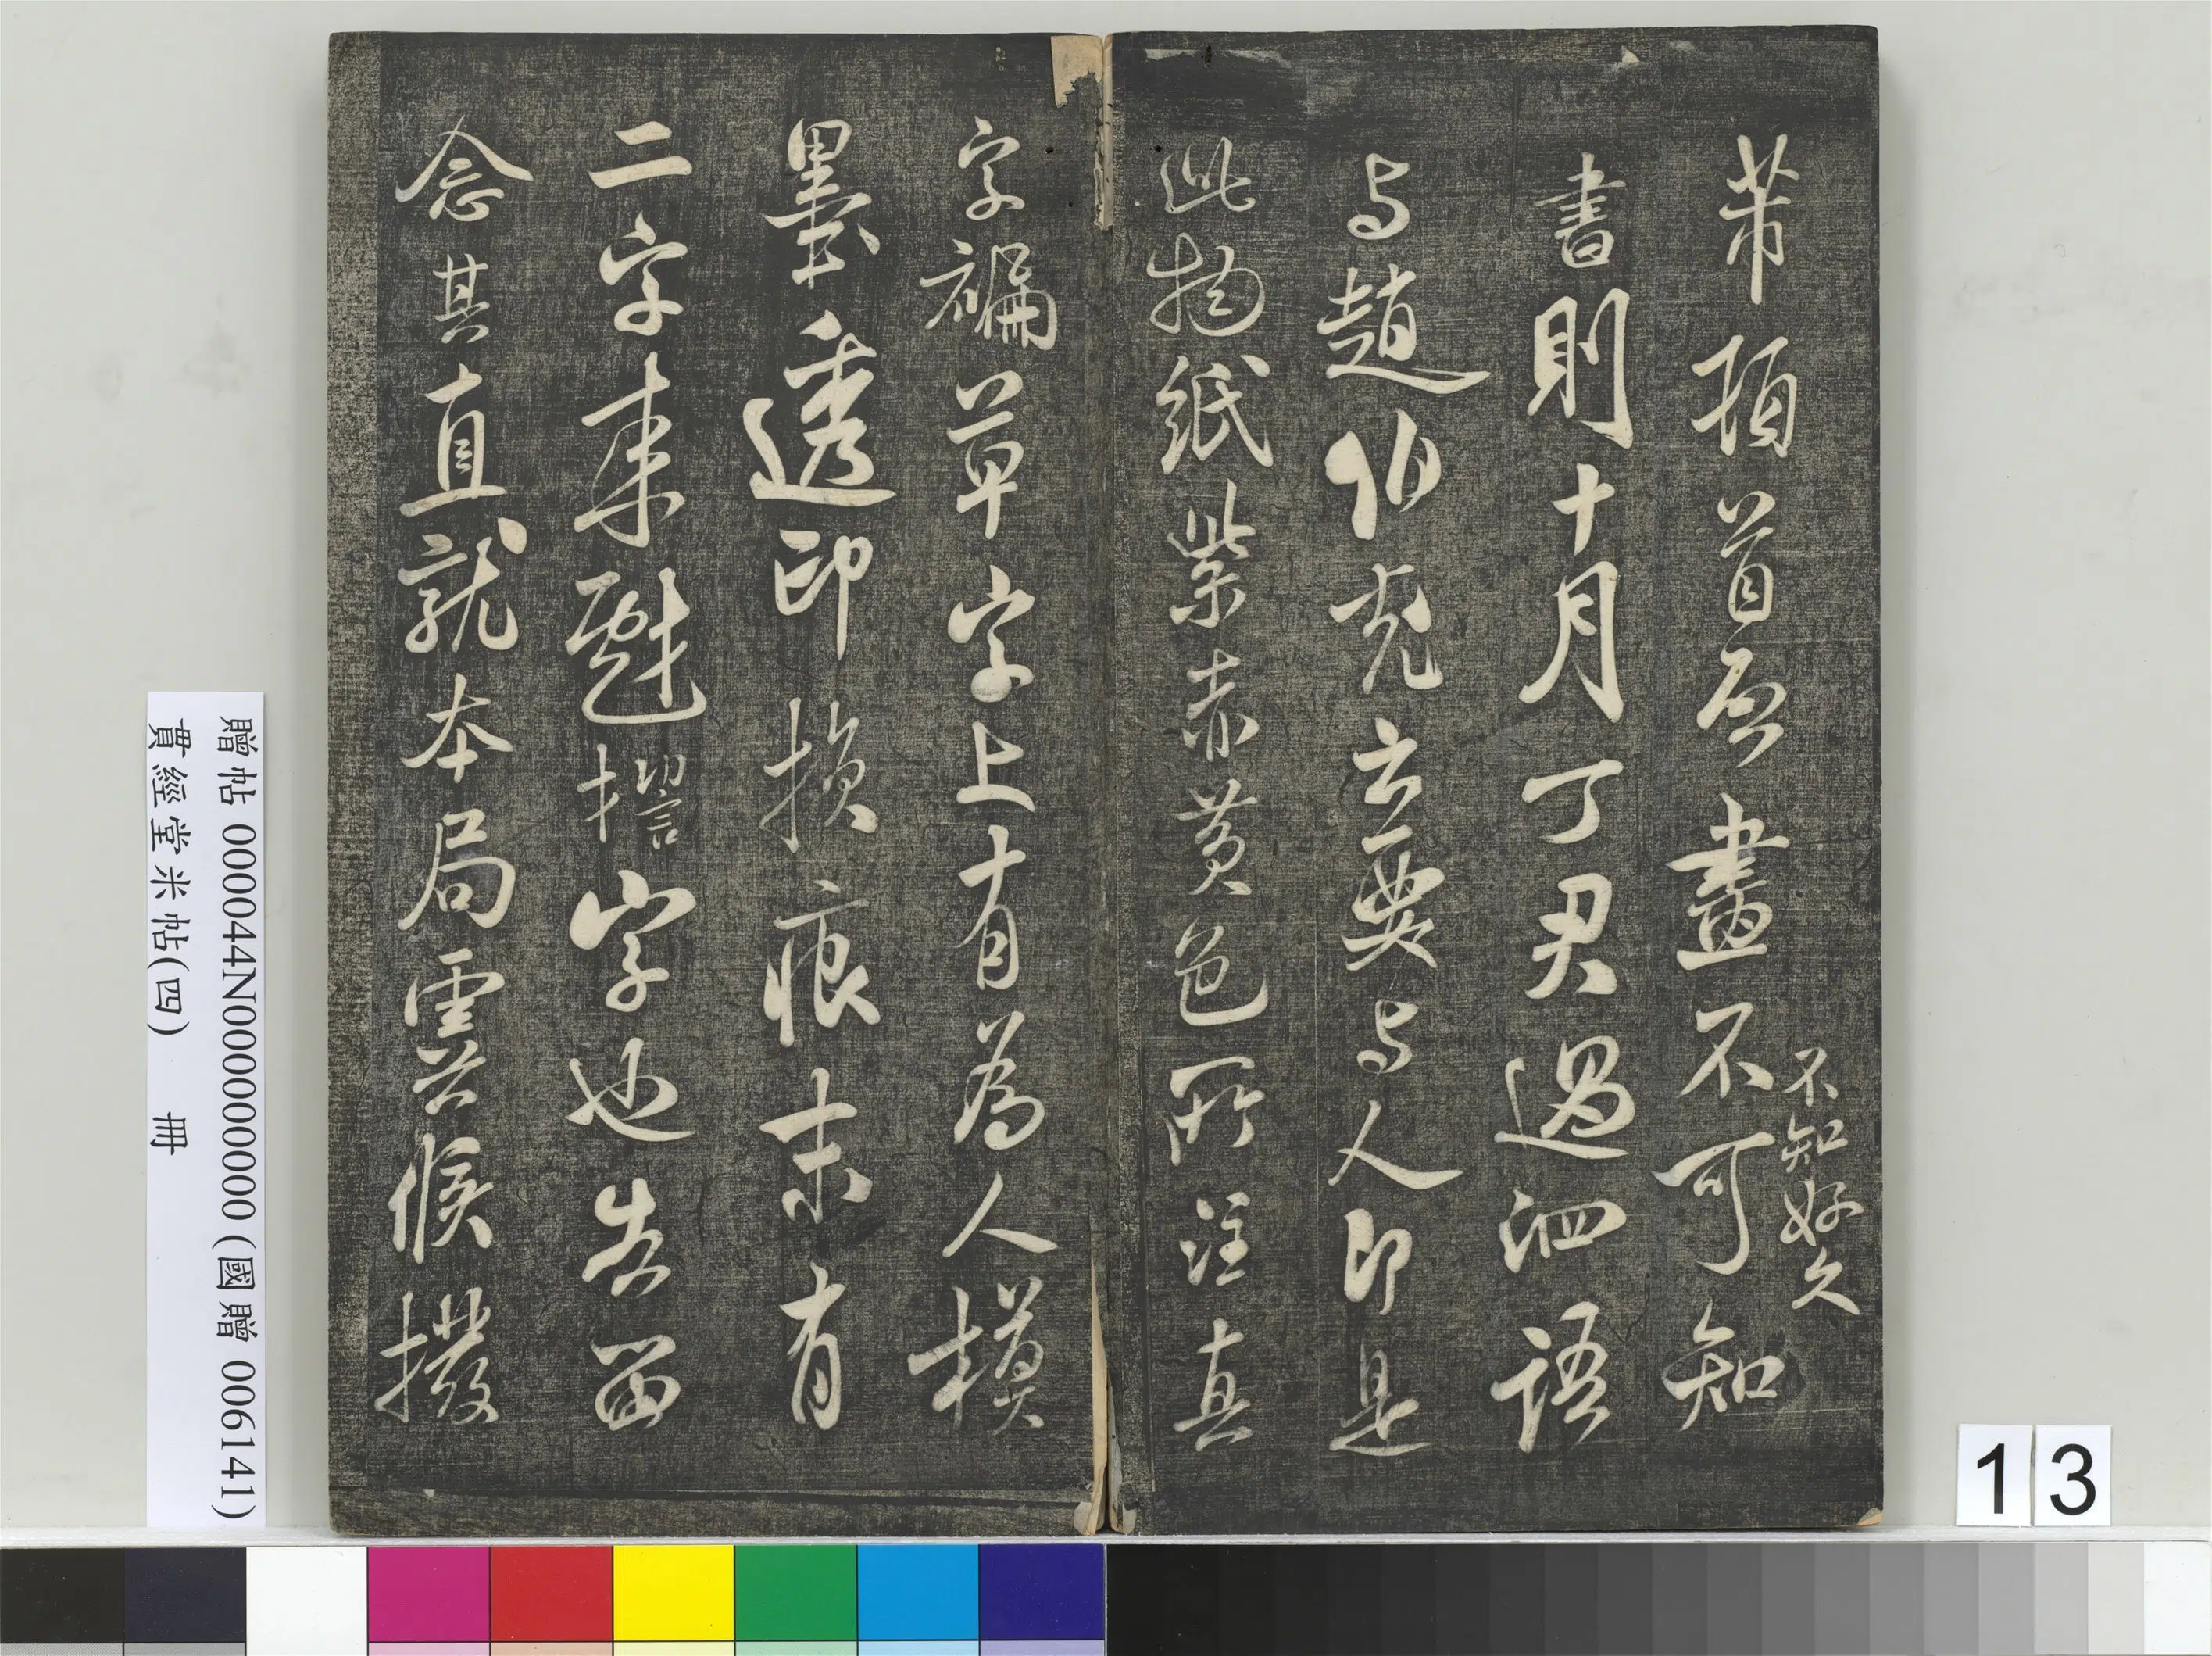 芾頓首啟畫不可知
不知好久
書則十月丁君過泗語
与趙伯充云要与人即是
此物紙紫赤黃色所注真
字褊草字上有為人模
墨透印損痕末有
二字来字也告留
念其直就本局候撥
贈帖 000044N000000000 (國贈 006141)
貫經堂米帖(四) 冊
13